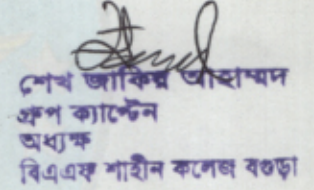 শেখ জাকির আহাম্মদ
গ্রুপ ক্যাপ্টেন
অধ্যক্ষ
বিএএফ শাহীন কলেজ বগুড়া